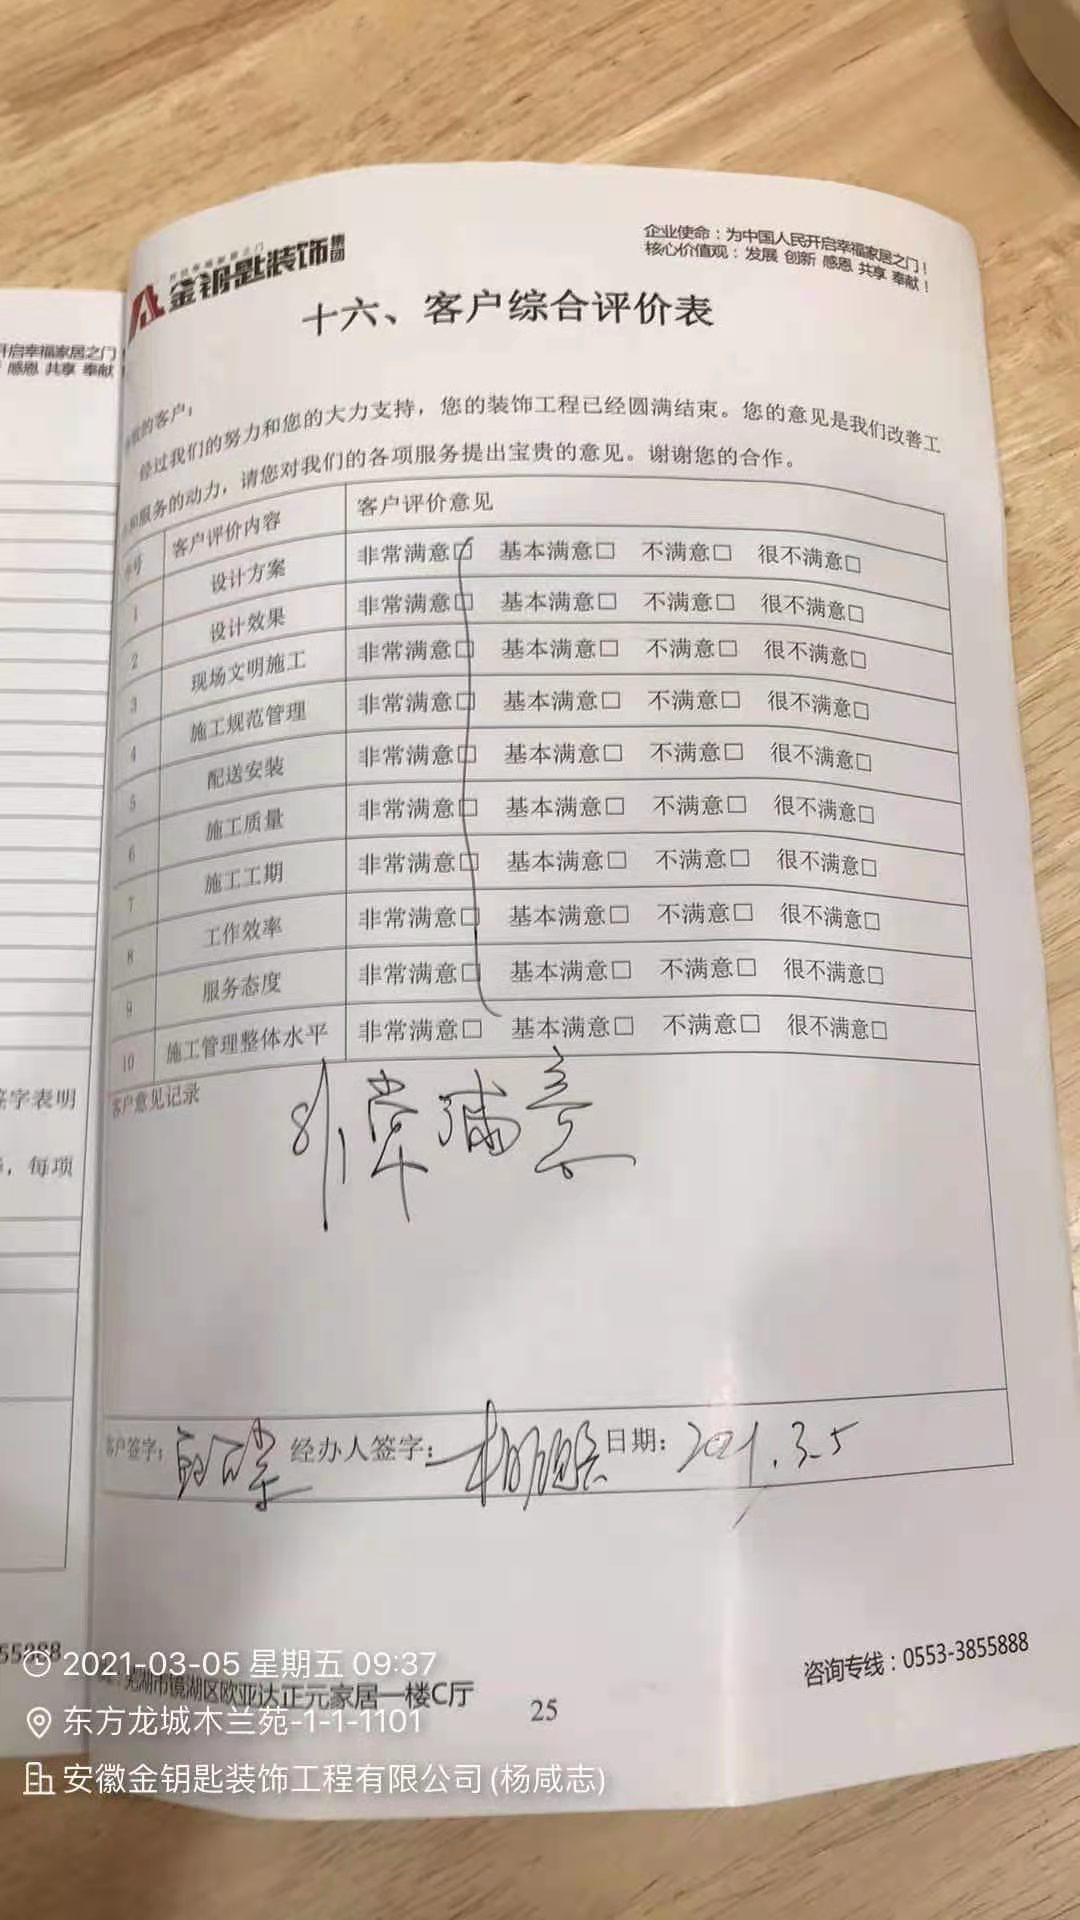 开启幸福家居之门
感恩 共享 奉献
签字表明
，每项
金钥匙装饰集团
企业使命：为中国人民开启幸福家居之门！
核心价值观：发展 创新 感恩 共享 奉献！
十六、客户综合评价表
的客户：
经过我们的努力和您的大力支持，您的装饰工程已经圆满结束。您的意见是我们改善工
和服务的动力，请您对我们的各项服务提出宝贵的意见。谢谢您的合作。
号 客户评价内容 客户评价意见
1 设计方案 非常满意□ 基本满意□ 不满意□ 很不满意□
2 设计效果 非常满意□ 基本满意□ 不满意□ 很不满意□
3 现场文明施工 非常满意□ 基本满意□ 不满意□ 很不满意□
4 施工规范管理 非常满意□ 基本满意□ 不满意□ 很不满意□
5 配送安装 非常满意□ 基本满意□ 不满意□ 很不满意□
6 施工质量 非常满意□ 基本满意□ 不满意□ 很不满意□
7 施工工期 非常满意□ 基本满意□ 不满意□ 很不满意□
8 工作效率 非常满意□ 基本满意□ 不满意□ 很不满意□
9 服务态度 非常满意□ 基本满意□ 不满意□ 很不满意□
10 施工管理整体水平 非常满意□ 基本满意□ 不满意□ 很不满意□
客户意见记录
非常满意
客户签字： 经办人签字： 日期：2021.3.5
55888
咨询专线：0553-3855888
芜湖市镜湖区欧亚达正元家居一楼C厅
25
2021-03-05 星期五 09:37
东方龙城木兰苑-1-1-1101
安徽金钥匙装饰工程有限公司(杨咸志)